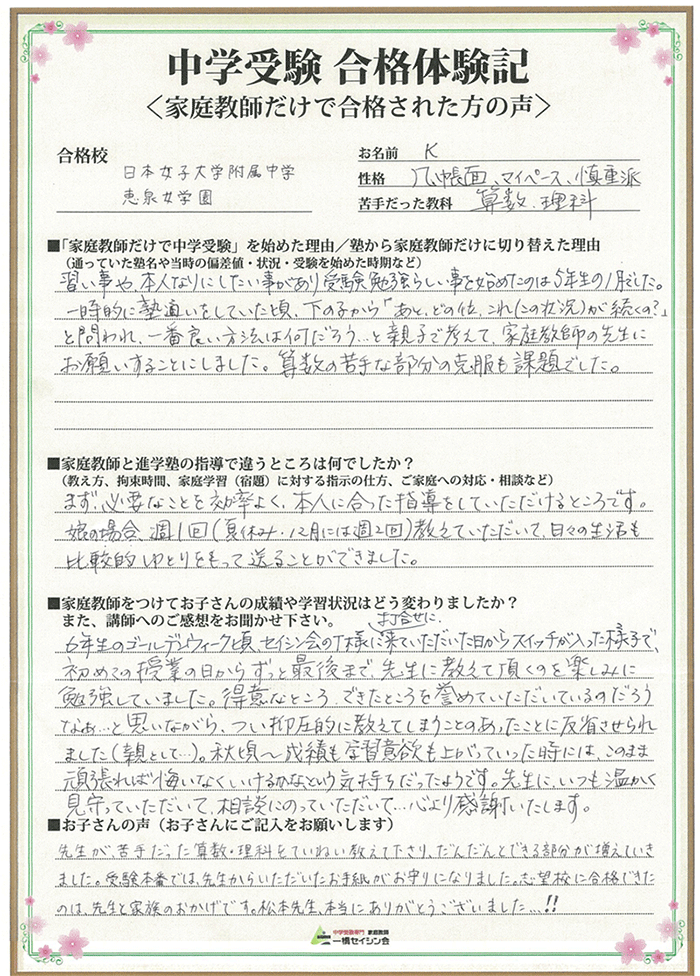 中学受験 合格体験記
＜家庭教師だけで合格された方の声＞
合格校
日本女子大学附属中学
恵泉女学園
お名前 K
性格 几帳面、マイペース、慎重派
苦手だった教科 算数・理科
■「家庭教師だけで中学受験」を始めた理由／塾から家庭教師だけに切り替えた理由
（通っていた塾名や当時の偏差値・状況・受験を始めた時期など）
習い事や本人なりにしたい事があり受験勉強らしい事を始めたのは5年生の1月でした。
一時的に塾通いをしていた頃、下の子から「あと、どの位、これ(この状況)が続くの?」
と問われ、一番良い方法は何だろう…と親子で考えて、家庭教師の先生に
お願いすることにしました。算数の苦手な部分の克服も課題でした。
■家庭教師と進学塾の指導で違うところは何でしたか？
（教え方、拘束時間、家庭学習（宿題）に対する指示の仕方、ご家庭への対応・相談など）
まず、必要なことを効率よく、本人に合った指導をしていただけるところです。
娘の場合、週1回(夏休み・12月には週2回)教えていただいて、日々の生活も
比較的ゆとりをもって送ることができました。
■家庭教師をつけてお子さんの成績や学習状況はどう変わりましたか？
また、講師へのご感想をお聞かせ下さい。
お打合せに
6年生のゴールデンウィーク頃、セイシン会のT様に来ていただいた日からスイッチが入った様子で、
初めての授業の日からずっと最後まで、先生に教えて頂くのを楽しみに
勉強していました。得意なところ、できたところを誉めていただいているのだろう
なぁ…と思いながら、つい抑圧的に教えてしまうことのあったことに反省させられ
ました(親として…)。秋頃〜成績も学習意欲も上がっていった時には、このまま
頑張れば悔いなくいけるかなという気持ちだったようです。先生に、いつも温かく
見守っていただいて、相談にのっていただいて…心より感謝いたします。
■お子さんの声（お子さんにご記入をお願いします）
先生が、苦手だった算数・理科をていねい教えて下さり、だんだんとできる部分が増えていき
ました。受験本番では、先生からいただいたお手紙がお守りになりました。志望校に合格できた
のは、先生と家族のおかげです。松本先生、本当にありがとうございました…!!
中学受験専門 家庭教師
一橋セイシン会